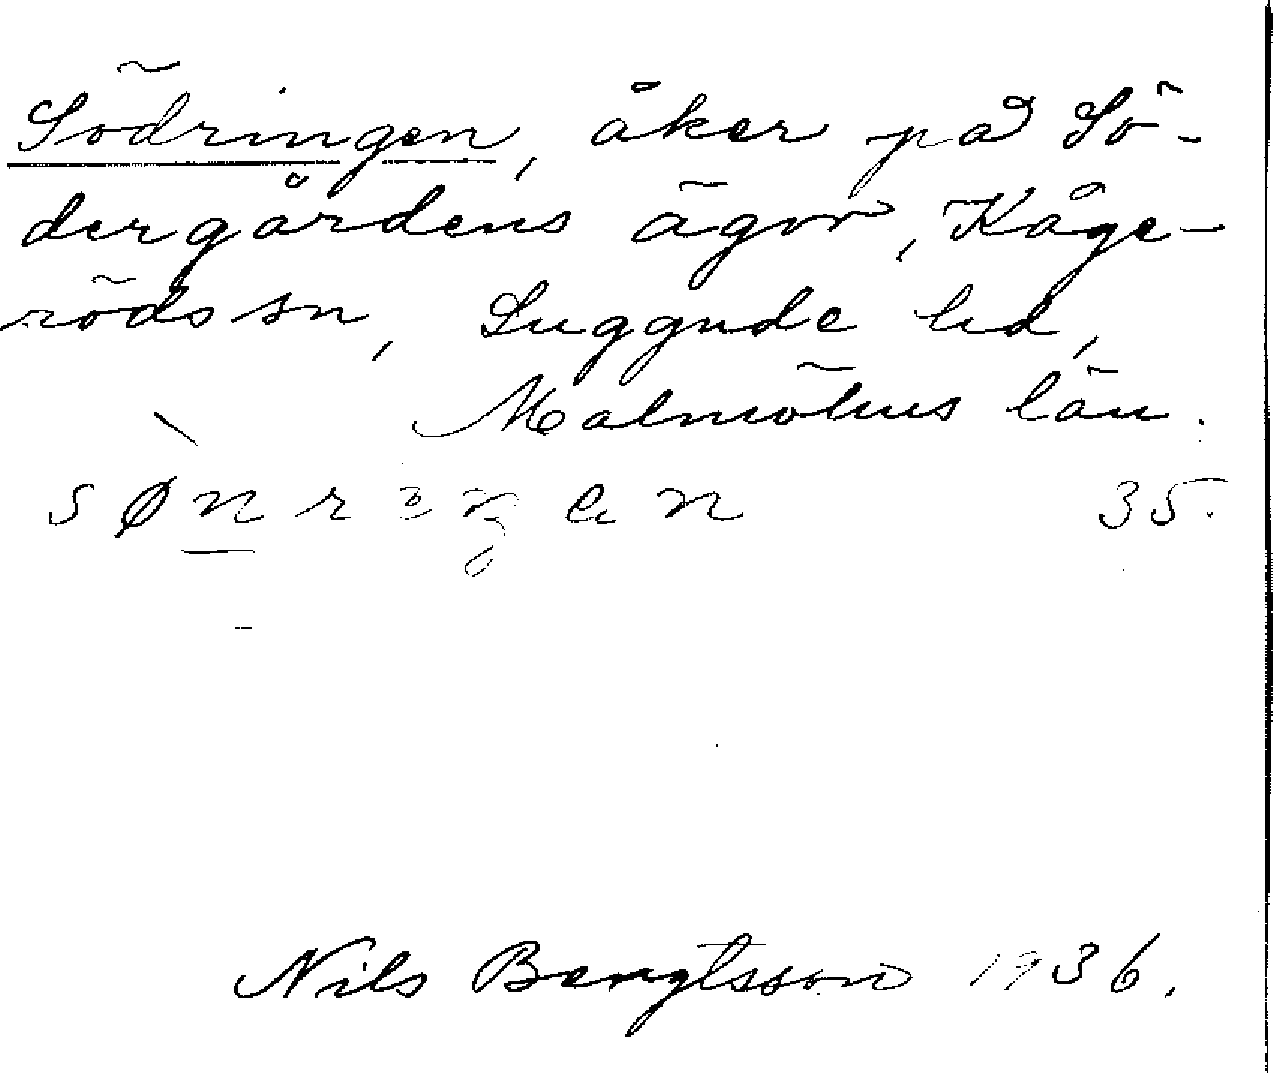 Södringen, åker på Sö-
dergårdens ägor, Kåge-
röds sn, Luggude hd,
Malmöhus län.
35.
Nils Bengtsson 1936.